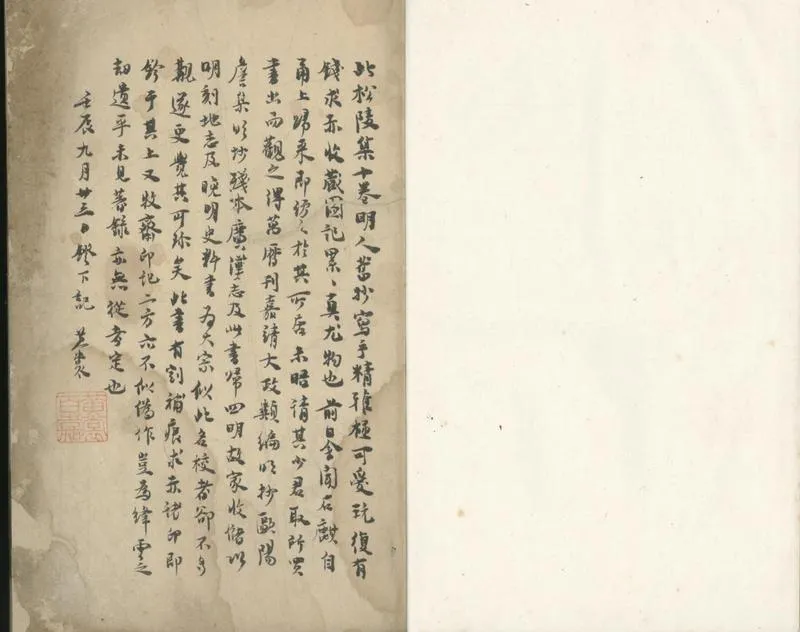 此松陵集十卷明人舊抄寫手精雅極可愛玩復有
錢求赤收藏圖記累〻真尤物也前日余聞石麒自
甬上歸來即訪之於其所居未晤請其少君取所買
書出而觀之得萬曆刊嘉靖大政類編明抄歐陽
詹集明抄殘本廣漢志及此書歸四明故家收儲以
明刻地志及晚明史料書為大宗似此名校者卻不多
觀遂更覺其可珍矣此書有剜補痕求赤諸印即
鈐于其上又牧齋印記二方亦不似偽作豈為絳雲之
劫遺乎未見著錄亦無從考定也
壬辰九月廿三日燈下記 黃裳
黃裳
百嘉